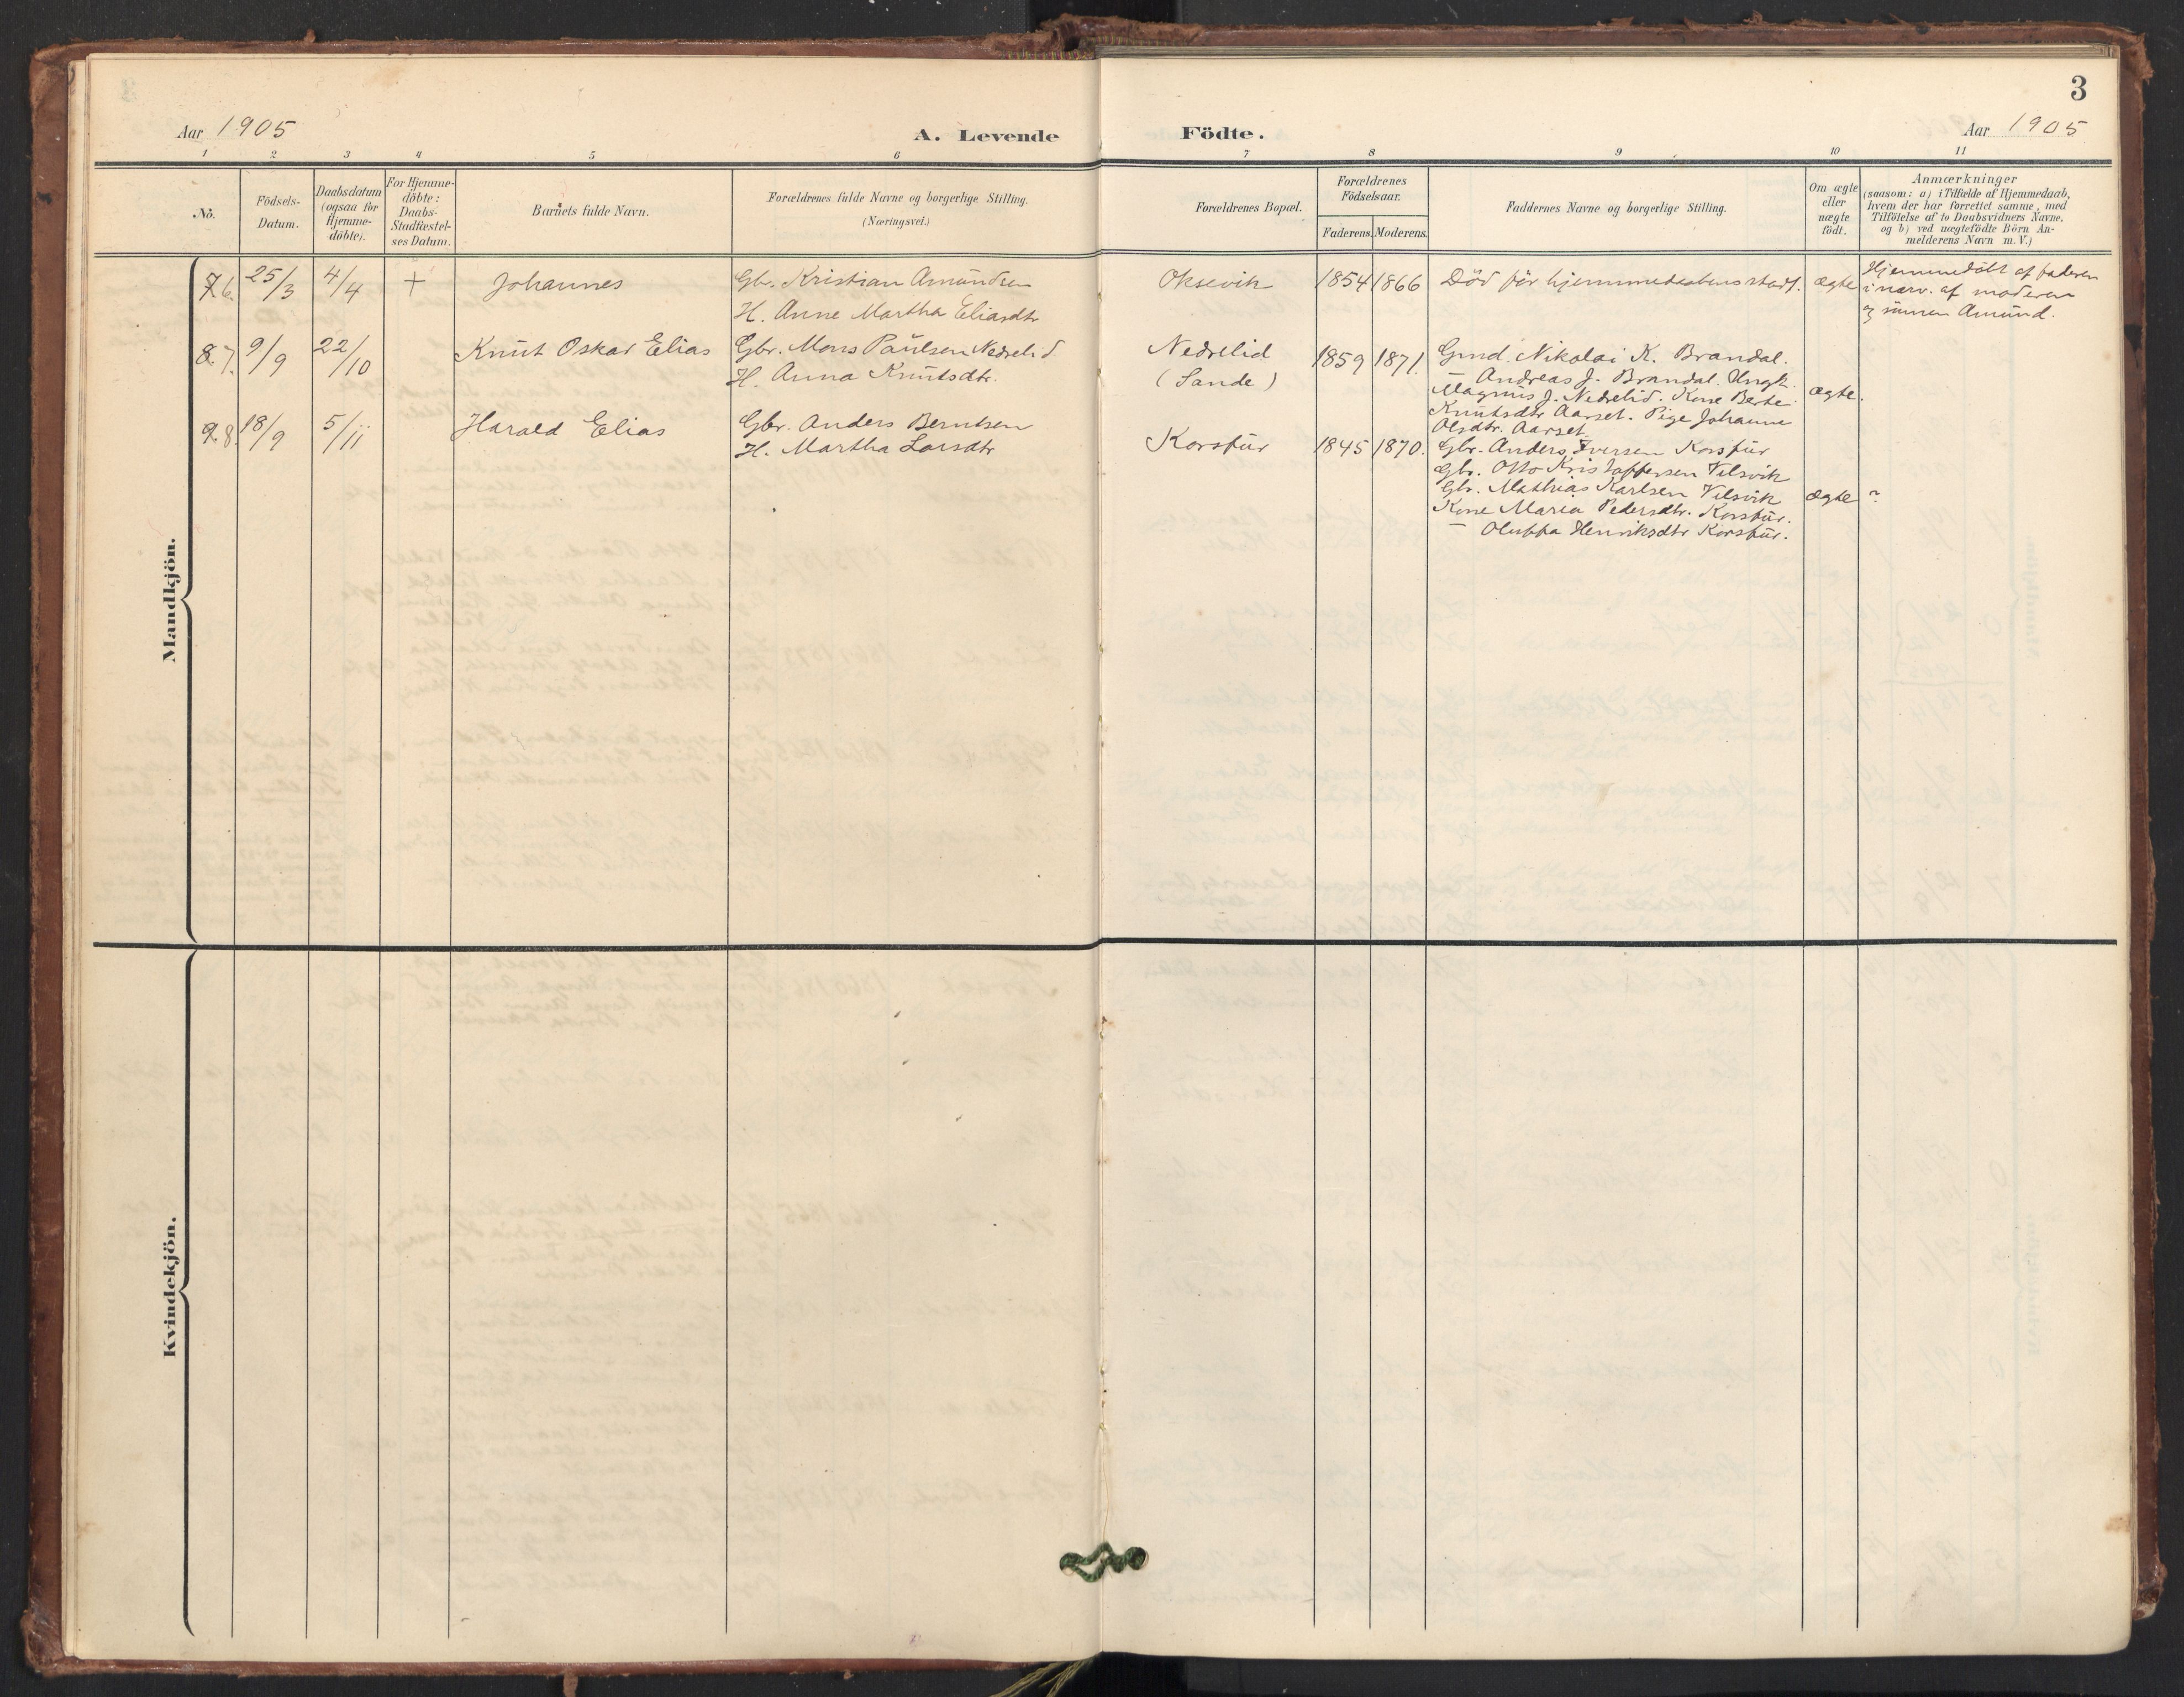 3
Aar 1905
A. Levende
Födte.
Aar 1905
1 2 3 4 5 6 7 8 9 10 11
No.
Födsels-
Datum.
Daabsdatum
(ogsaa for
Hjemme-
döbte).
For Hjemme-
döbte:
Daabs-
Stadfæstel-
ses Datum.
Barnets fulde Navn.
Forældrenes fulde Navne og borgerlige Stilling.
(Næringsvei.)
Forældrenes Bopæl.
Forældrenes
Födselsaar.
Faderens. Moderens.
Faddernes Navne og borgerlige Stilling.
Om ægte
eller
uægte
födt.
Anmærkninger
(saasom: a) i Tilfælde af Hjemmedaab,
hvem der har forrettet samme, med
Tilföielse af to Daabsvidners Navne.
og b) ved uægtefödte Börn An-
melderens Navn m. V.)
Mandkjön.
7 6. 25/3 4/4 + Johannes
Gbr. Kristian Amundsen
H. Anne Martha Eliasdtr
Oksevik 1854 1866 Död før hjemmedaabens stadf. ægte
Hjemmedöbt af faderen
i nærv. af moderen
og sönnen Amund.
8 7. 9/9 22/10 Knut Oskar Elias
Gbr. Mons Paulsen Nedrelid
H. Anna Knutsdtr.
Nedrelid
(Sande)
1859 1871.
Gmd. Nikolai K. Brandal.
— Andreas J. Brandal. Ungk.
Magnus J. Nedrelid. Kone Berte
Knutsdtr Aarset. Pige Johanne
Olsdtr. Aarset
ægte.
9 8. 18/9 5/11 Harald Elias
Gbr. Anders Berntsen
H. Martha Larsdtr
Korsfur 1845 1870.
Gbr. Anders Iversen Korsfur
Gbr. Otto Kristoffersen Vilsvik
Gbr. Mathias Karlsen Vilsvik
Kone Maria Pedersdtr. Korsfur.
— Oluffa Henriksdtr Korsfur.
ægte ?
Kvindekjön.